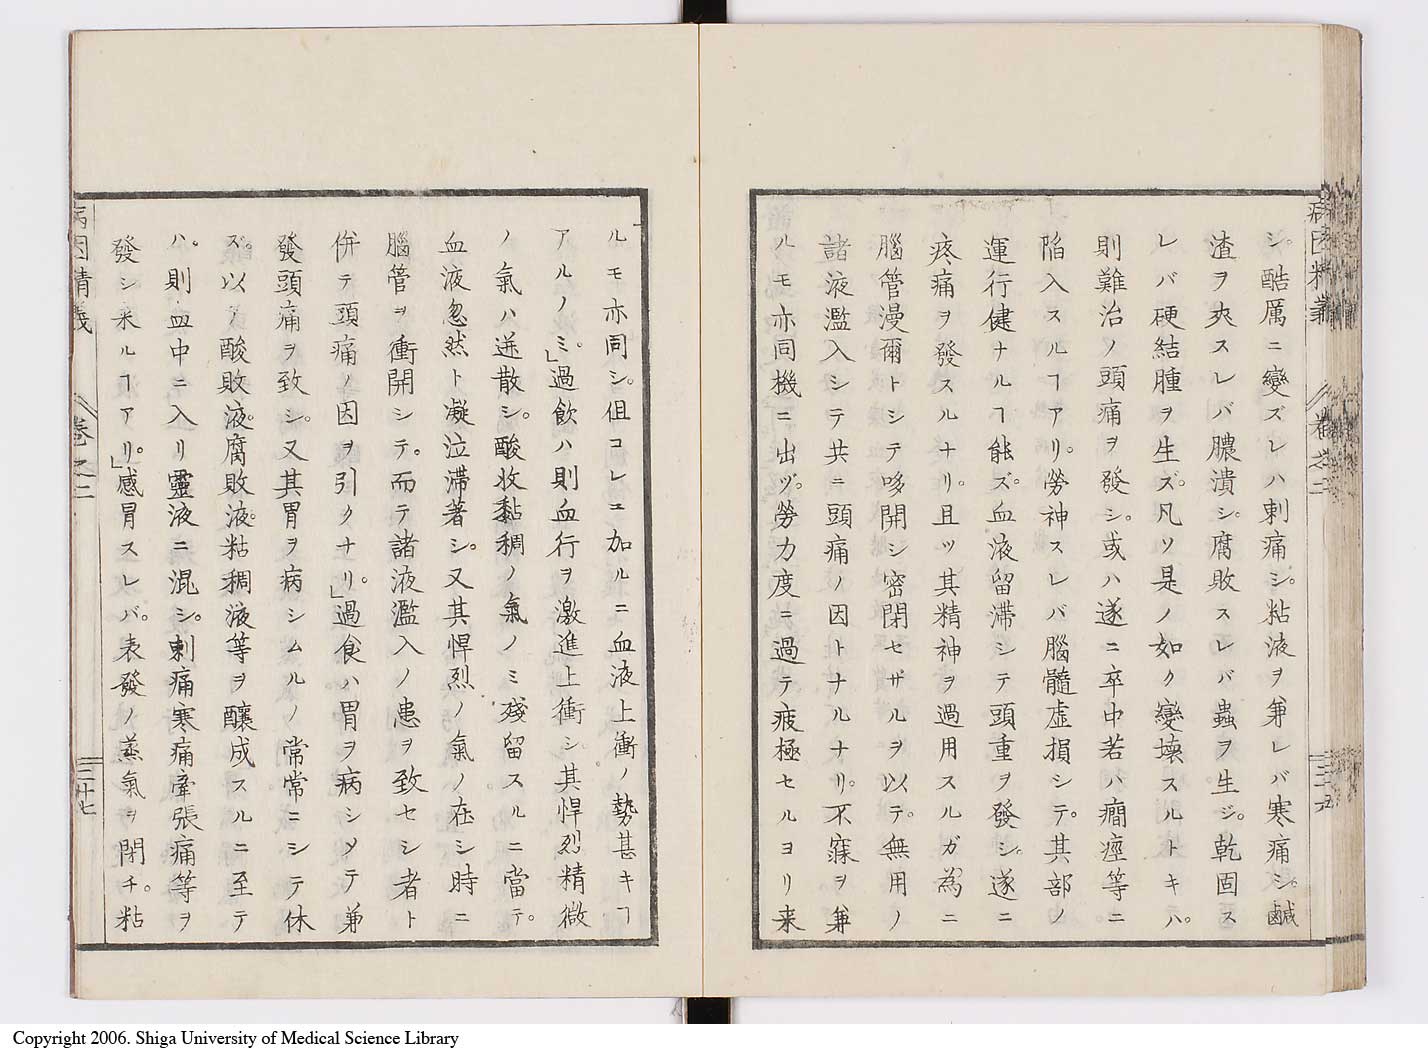 シ。酷厲ニ變ズレハ刺痛シ。粘液ヲ兼レバ寒痛シ。鹹
渣ヲ夾スレバ膿潰シ。腐敗スレバ蟲ヲ生ジ。乾固ス
レバ硬結腫ヲ生ズ。凡ソ是ノ如ク變壊スルトキハ。
則難治ノ頭痛ヲ發シ。或ハ遂ニ卒中若バ癇痙等ニ
陥入スルヿアリ。勞神スレバ腦髓虚損シテ。其部ノ
運行健ナルヿ能ズ。血液留滞シテ頭重ヲ發シ。遂ニ
疼痛ヲ發スルナリ。且ツ其精神ヲ過用スルガ為ニ
腦管漫爾トシテ哆開シ密閉セザルヲ以テ。無用ノ
諸液濫入シテ共ニ頭痛ノ因トナルナリ。不寐ヲ兼
ルモ亦同機ニ出ヅ。勞力度ニ過テ疲極セルヨリ来
ルモ亦同シ。但コレニ加ルニ血液上衝ノ勢甚キヿ
アルノミ。」過飲ハ則血行ヲ激進上衝シ其悍烈精微
ノ氣ハ迸散シ。酸收黏稠ノ氣ノミ殘留スルニ當テ。
血液忽然ト凝泣滞著シ。又其悍烈ノ氣ノ在シ時ニ
腦管ヲ衝開シテ。而テ諸液濫入ノ患ヲ致セシ者ト
併テ頭痛ノ因ヲ引クナリ。」過食ハ胃ヲ病シメテ兼
發頭痛ヲ致シ。又其胃ヲ病シムルノ常常ニシテ休
ズ。以テ酸敗液。腐敗液。粘稠液等ヲ釀成スルニ至テ
ハ。則血中ニ入リ靈液ニ混シ。刺痛寒痛牽張痛等ヲ
發シ来ルヿアリ。」感冒スレバ。表發ノ蒸氣ヲ閉チ。粘
病因精義
卷之二
三十七